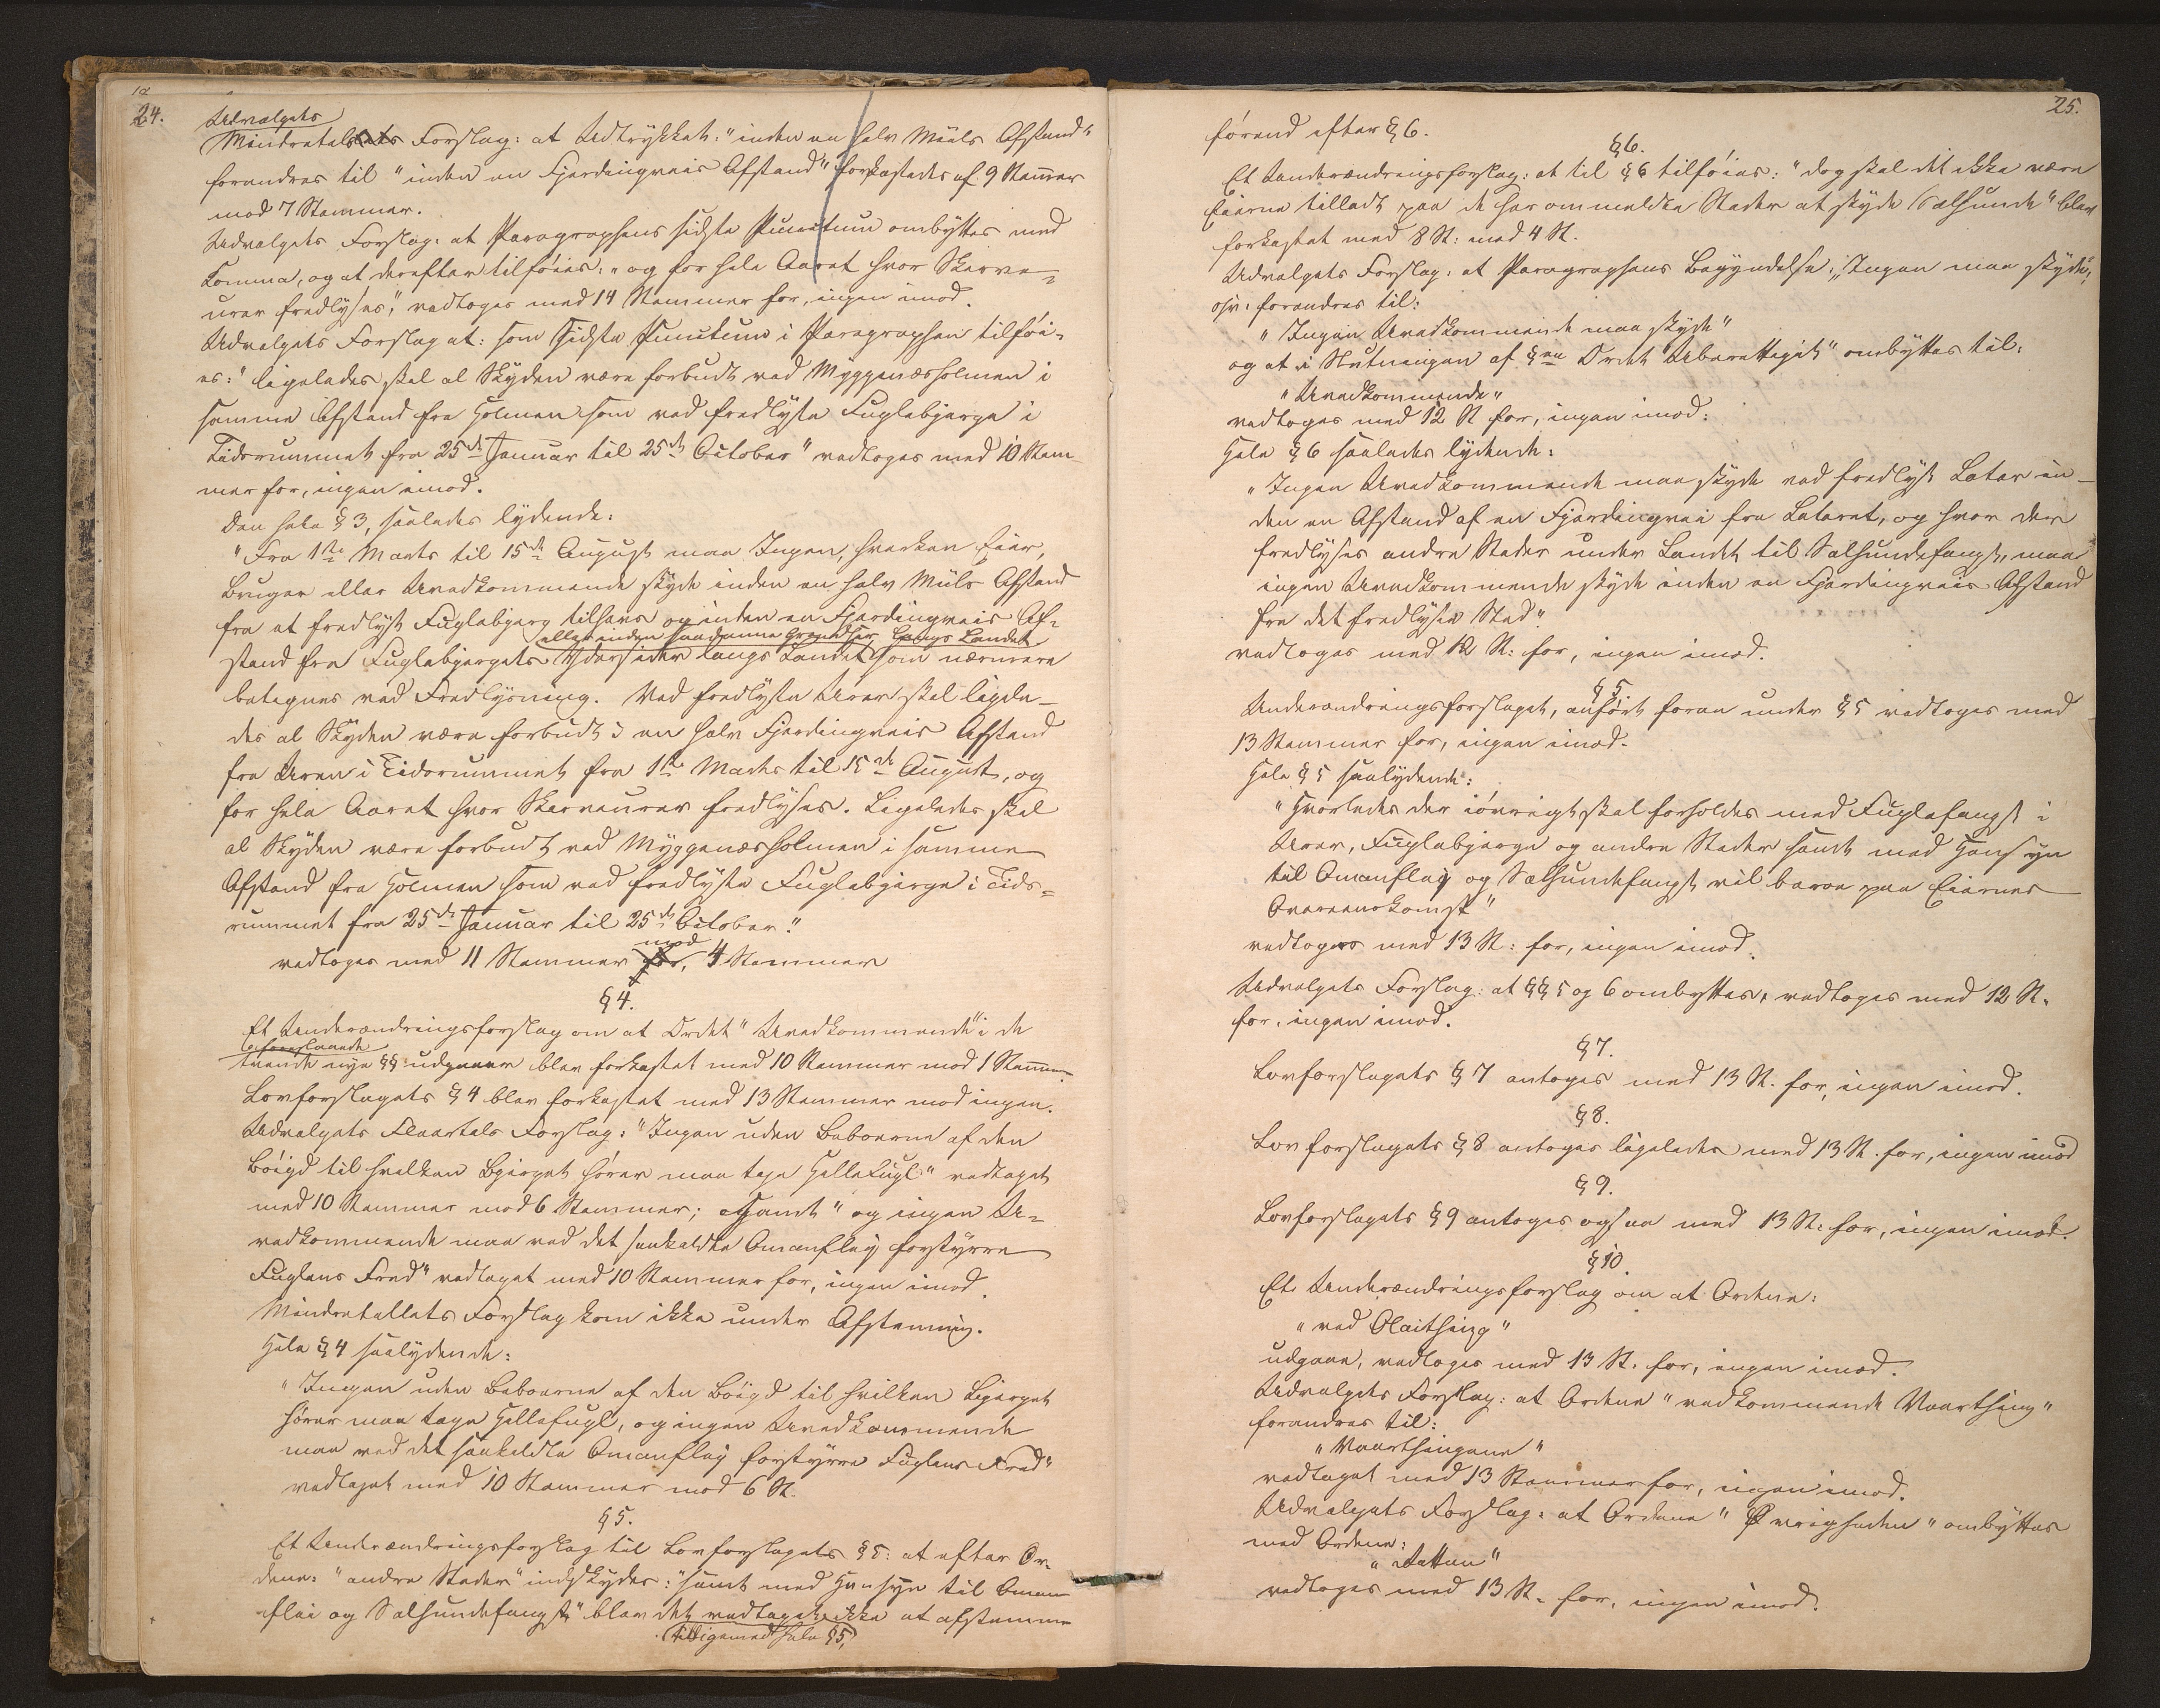 24.
Udvalgets
Mindretals Forslag: at Udtrykket: "inden en halv Miils Afstand"
forandres til "inden en Fjerdingveis Afstand" forkastedes af 9 Stemmer
mod 7 Stemmer.
Udvalgets Forslag: at Paragraphens sidste Punctum ombyttes med
Comma, og at derefter tilføies: "og for hele Aaret hvor Skarve-
urer fredlyses", vedtoges med 14 Stemmer for, ingen imod.
Udvalgets Forslag at: som sidste Punctum i Paragraphen tilføi-
es: "ligeledes skal al Skyden være forbudt ved Myggenæsholmen i
samme Afstand fra Holmen som ved fredlyste Fuglebjerge i
Tidsrummet fra 25de Januar til 25de October" vedtoges med 10 Stem-
mer for, ingen imod.
Den hele § 3, saaledes lydende:
"Fra 1ste Marts til 15de August maa Ingen, hverken Eier,
Bruger eller Uvedkommende skyde inden en halv Miils Afstand
fra et fredlyst Fuglebjerg tilhavs og inden en Fjerdingveis Af-
eller inden saadanne Grændser langs Landet
stand fra Fuglebjergets Ydersider langs Landet som nærmere
betegnes ved Fredlysning. Ved fredlyste Urer skal ligele-
des al Skyden være forbudt i en halv Fjerdingveis Afstand
fra Uren i Tidsrummet fra 1ste Marts til 15de August, og
for hele Aaret hvor Skarveurer fredlyses. Ligeledes skal
al Skyden være forbudt ved Myggenæsholmen i samme
Afstand fra Holmen som ved fredlyste Fuglebjerge i Tids-
rummet fra 25de Januar til 25de October."
mod
vedtoges med 11 Stemmer for, 4 Stemmer
§ 4.
Et Underændringsforslag om at Ordet "Uvedkommende" i de
foreslaaede
tvende nye §§ udgaaer blev forkastet med 10 Stemmer mod 1 Stemme
Lovforslagets § 4 blev forkastet med 13 Stemmer mod ingen.
Udvalgets Fleertals Forslag: "Ingen uden Beboerne af den
Bøigd til hvilken Bjerget hører maa tage Hellefugl" vedtaget
med 10 Stemmer mod 6 Stemmer; samt "og ingen U-
vedkommende maa ved det saakaldte Omanfleyg forstyrre
Fuglens Fred" vedtaget med 10 Stemmer for, ingen imod.
Mindretallets Forslag kom ikke under Afstemning.
Hele § 4 saalydende:
"Ingen uden Beboerne af den Bøigd til hvilken Bjerget
hører maa tage Hellefugl, og ingen Uvedkommende
maa ved det saakaldte Omanfleyg forstyrre Fuglens Fred"
vedtaget med 10 Stemmer mod 6 St.
§ 5.
Et Underændringsforslag til Lovforslagets § 5: at efter Or-
dene: "andre Steder" indskydes: "samt med Hensyn til Oman
flei og Sælhundefangst" blev det vedtaget ikke at afstemme
tilligemed hele § 5,
25.
førend efter § 6.
§ 6.
Et Underændringsforslag: at til § 6 tilføies: "dog skal det ikke være
Eierne tilladt paa de her ommeldte Steder at skyde Sælhunde" blev
forkastet med 8 St: mod 4 St.
Udvalgets Forslag: at Paragraphens Begyndelse: "Ingen maa skyde",
osv: forandres til:
"Ingen Uvedkommende maa skyde"
og at i Slutningen af §en Ordet "Uberettiget" ombyttes til:
"Uvedkommende"
vedtoges med 12 St for, ingen imod:
Hele § 6 saaledes lydende:
"Ingen Uvedkommende maa skyde ved fredlyst Later in-
den en Afstand af en Fjerdingvei fra Lateret, og hvor der
fredlyses andre Steder under Landet til Sælhundefangst, maa
ingen Uvedkommende skyde inden en Fjerdingveis Afstand
fra det fredlyste Sted"
vedtoges med 12 St: for, ingen imod.
§ 5.
Underændringsforslaget, anført foran under § 5 vedtoges med
13 Stemmer for, ingen imod.
Hele § 5 saalydende:
"Hvorledes der iøvrigt skal forholdes med Fuglefangst i
Urer, Fuglebjerge og andre Steder samt med Hensyn
til Omanfleyg og Sælhundefangst vil beroe paa Eiernes
Overeenskomst"
vedtoges med 13 St: for, ingen imod.
Udvalgets Forslag: at §§ 5 og 6 ombyttes, vedtoges med 12 St.
for, ingen imod.
§ 7.
Lovforslagets § 7 antoges med 13 St. for, ingen imod.
§ 8.
Lovforslagets § 8 antoges ligeledes med 13 St. for, ingen imod
§ 9.
Lovforslagets § 9 antoges ogsaa med 13 St: for, ingen imod.
§ 10.
Et Underændringsforslag om at Ordene:
"ved Olaithing"
udgaae, vedtoges med 13 St. for, ingen imod.
Udvalgets Forslag: at Ordene "vedkommende Vaarthing"
forandres til:
"Vaarthingene"
vedtaget med 13 Stemmer for, ingen imod.
Udvalgets Forslag: at Ordene "Øvrigheden" ombyttes
med Ordene:
"Retten"
vedtoges med 13 St. for, ingen imod.